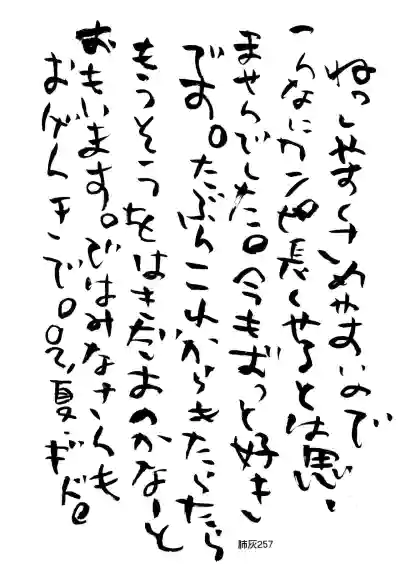 ねっしやすくさめやすいので
こんなにカンピ長くせるとは思い
ませんでした。今もずっと好き
です。たぶんこれがらきたらたら
もうそうをはきだすのかなーと
おもいます。ではみなさんも
おげんきで。
夏
肺灰257